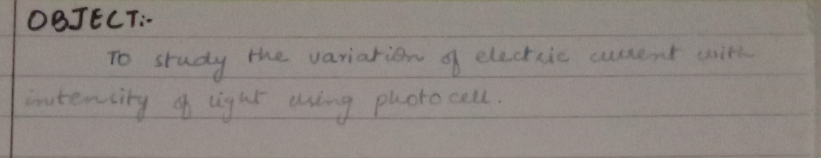 OBJECT:-
To study the variation of electric current with
intensity of light using photocell.